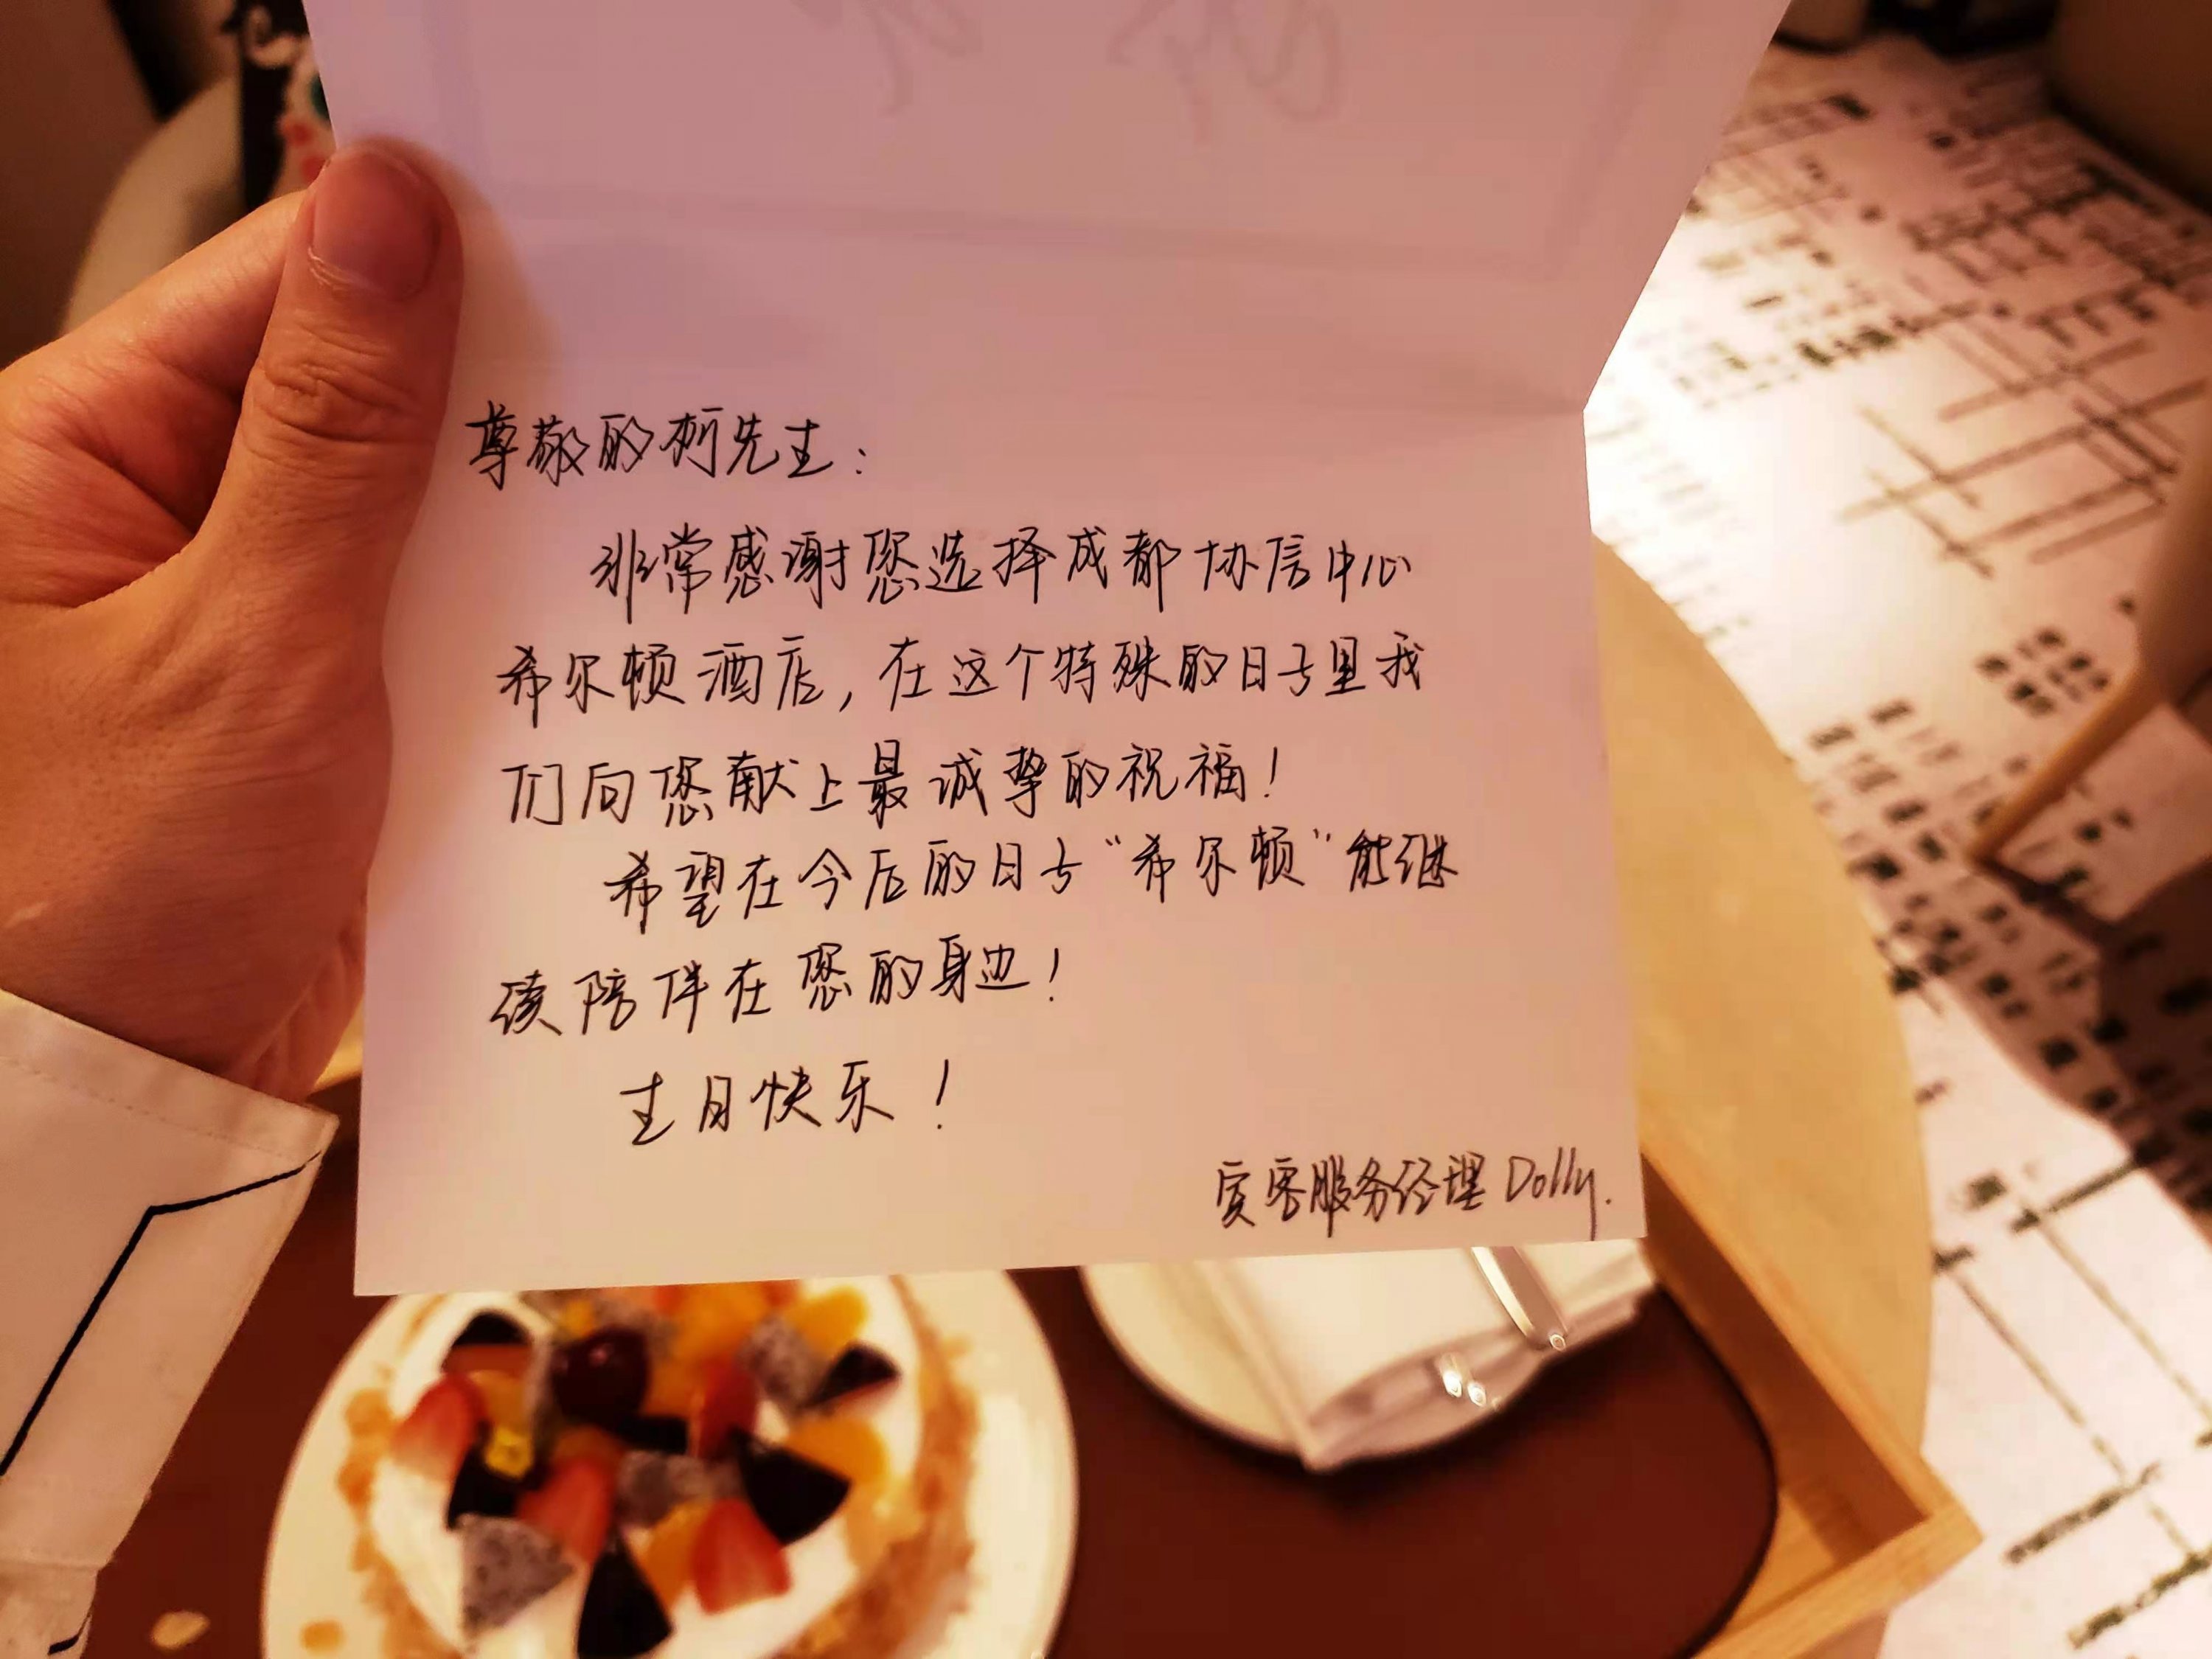 尊敬的柯先生：
非常感谢您选择成都协信中心
希尔顿酒店，在这个特殊的日子里我
们向您献上最诚挚的祝福！
希望在今后的日子“希尔顿”能继
续陪伴在您的身边！
生日快乐！
宾客服务经理 Dolly.